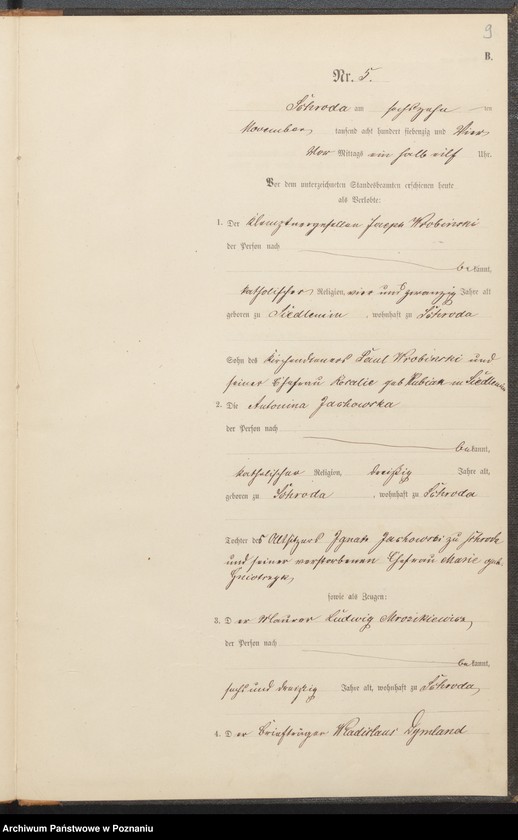 9
B.
Nr. 5.
Schroda am sechszehn ten
November tausend acht hundert siebenzig und Vier
Vor Mittags ein halb eilf Uhr.
Vor dem unterzeichneten Standesbeamten erschienen heute
als Verlobte:
1. Der Joseph Wrobinski
der Person nach
bekannt,
katholischer Religion, vier und zwanzig Jahre alt
geboren zu , wohnhaft zu Schroda
Sohn des Kirchendieners Paul Wrobinski und
seiner Ehefrau Rosalie geb Kubiak in
2. Die Antonina Jachowska
der Person nach
bekannt,
katholischer Religion, dreißig Jahre alt,
geboren zu Schroda , wohnhaft zu Schroda
Tochter des Altsitzers Ignatz Jachowski zu Schroda
und seiner verstorbenen Ehefrau Marie geb.
sowie als Zeugen:
3. Der Maurer Ludwig Mrozikiewicz,
der Person nach
bekannt,
sechs und dreißig Jahre alt, wohnhaft zu Schroda,
4. Der Briefträger Wladislaus Dymland
Archiwum Państwowe w Poznaniu